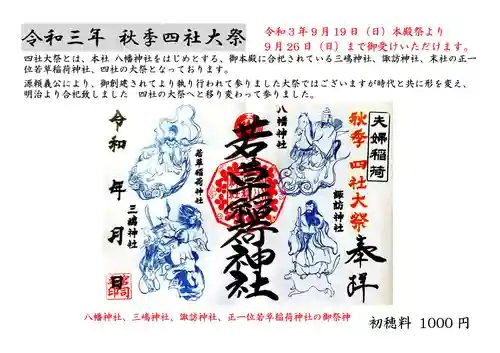 令和三年 秋季四社大祭
令和３年９月１９日（日）本殿祭より
９月２６日（日）まで御受けいただけます。
四社大祭とは、本社 八幡神社をはじめとする、御本殿に合祀されている三嶋神社、諏訪神社、末社の正一
位若草稲荷神社、四社の大祭となっております。
源頼義公により、御創建されてより執り行われて参りました大祭ではございますが時代と共に形を変え、
明治より合祀致しました 四社の大祭へと移り変わって参りました。
夫婦稲荷
秋季 四社大祭
奉拝
八幡神社
諏訪神社
若草稲荷神社
若草稲荷神社
三嶋神社
令和 年 月 日
八幡神社、三嶋神社、諏訪神社、正一位若草稲荷神社の御祭神
初穂料 1000 円